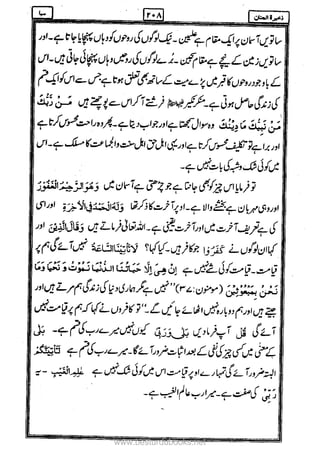 ذخيرة الجنان ۲۰۸ سبا
ساتویں آسمان پر ایک مقام ہے علیین۔ نیک لوگوں کی روحوں کو وہاں پہنچایا جاتا ہے۔ اور
ساتویں زمین کے نیچے ہے مقام سجین۔ برے لوگوں کی روحیں وہاں پہنچائی جاتی ہیں۔ اس
کے باوجود روحوں کا قبر میں پڑے میت کے ساتھ بھی تعلق ہوتا ہے جس سے اس کو ایک قسم
کی زندگی حاصل ہوتی ہے۔ منکر نکیر فرشتے آکر اس سے پوچھتے ہیں مَنْ رَّبُّكَ
مَنْ نَبِيُّكَ مَا دِيْنُكَ وہ سوال سمجھتا ہے اور جواب دیتا ہے۔ پھر وہ راحت محسوس کرتا ہے
اور برا ہے تو تکلیف محسوس کرتا ہے اور یہی اہل حق اہل سنت والجماعت کا مسلک ہے۔ اس
میں کوئی شک و شبہ کی بات نہیں ہے۔
تو فرمایا اس چیز کو بھی جانتا ہے جو چڑھتی ہے آسمان میں وَهُوَ الرَّحِيْمُ الْغَفُوْرُ
اور وہی مہربان ہے بخشنے والا ہے۔ اوپر آخرت کا ذکر تھا وَلَهُ الْحَمْدُ فِى الْاٰخِرَةِ اور اسی
کی ہے تعریف آخرت میں اور آخرت یقینی ہے۔ اللہ تعالیٰ فرماتے ہیں وَقَالَ الَّذِيْنَ اور
کہا ان لوگوں نے كَفَرُوْا جو کافر ہیں۔ کیا کہا؟ لَا تَاْتِيْنَا السَّاعَةُ نہیں آئے گی ہم پر
قیامت۔ قیامت کوئی شے نہیں ہے اِنْ هِىَ اِلَّا حَيَاتُنَا الدُّنْيَا نَمُوْتُ وَ نَحْيَا وَمَا
نَحْنُ بِمَبْعُوْثِيْنَ (مومنون: ۳۷) "نہیں ہے مگر ہماری دنیا کی زندگی ہم مرتے ہیں اور
جیتے ہیں اور ہم دوبارہ نہیں اٹھائے جائیں گے۔" تو کافروں نے کہا کہ ہم پر قیامت نہیں
آئے گی قُلْ آپ فرما دیں بَلٰى وَرَبِّىْ کیوں نہیں میرے رب کی قسم ہے۔ بَلٰى
کے معنیٰ میں کسی چیز کی نفی کے بعد اثبات ضرور آئے گا۔ میرے رب کی قسم ہے لَتَاْتِيَنَّكُمْ
البتہ ضرور آئے گی تمہارے اوپر قیامت اس میں کوئی شک نہیں ہے عٰلِمِ الْغَيْبِ۔ یہ
رَبِّىْ کی صفت ہے۔ میرا رب عالم الغیب ہے۔
www.besturdubooks.net